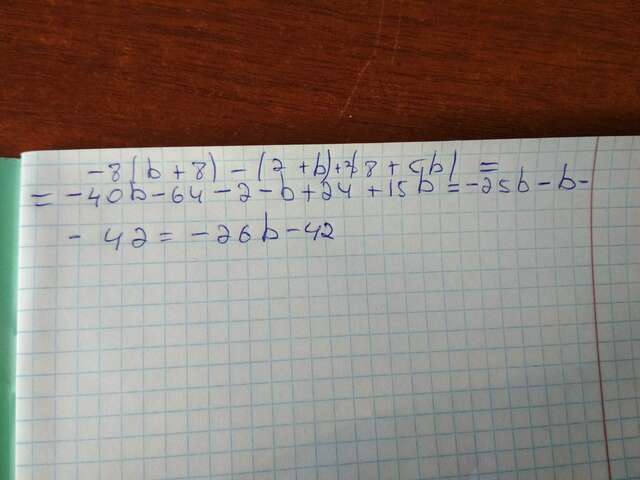 -8(b+8)-(2+b)+3(8+5b)=
=-40b-64-2-b+24+15b=-25b-b-
-42=-26b-42